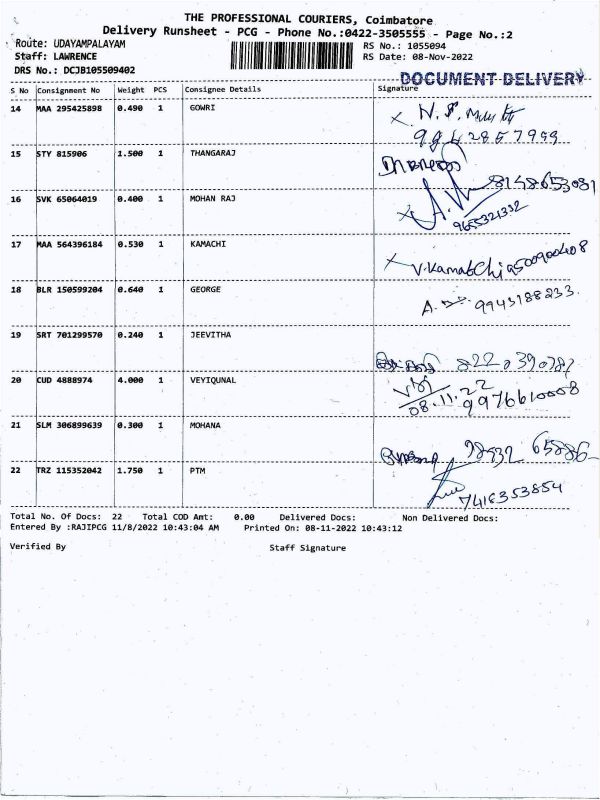 THE PROFESSIONAL COURIERS, Coimbatore
Delivery Runsheet - PCG - Phone No.:0422-3505555 - Page No.:2
Route: UDAYAMPALAYAM
RS No.: 1055094
Staff: LAWRENCE
RS Date: 08-Nov-2022
DRS No.: DCJB105509402
DOCUMENT DELIVERY
S No Consignment No Weight PCS Consignee Details Signature
14 MAA 295425898 0.490 1 GOWRI
15 STY 815906 1.500 1 THANGARAJ
8148653081
16 SVK 65064019 0.400 1 MOHAN RAJ
9655321332
17 MAA 564396184 0.530 1 KAMACHI
V.Kamatchi 9500900408
18 BLR 150599204 0.640 1 GEORGE
9943188233
19 SRT 701299570 0.240 1 JEEVITHA
20 CUD 4888974 4.000 1 VEYIQUNAL
08.11.22
9976610008
21 SLM 306899639 0.300 1 MOHANA
98932 65886
22 TRZ 115352042 1.750 1 PTM
7418353854
Total No. Of Docs: 22 Total COD Amt: 0.00 Delivered Docs: Non Delivered Docs:
Entered By :RAJIPCG 11/8/2022 10:43:04 AM Printed On: 08-11-2022 10:43:12
Verified By Staff Signature